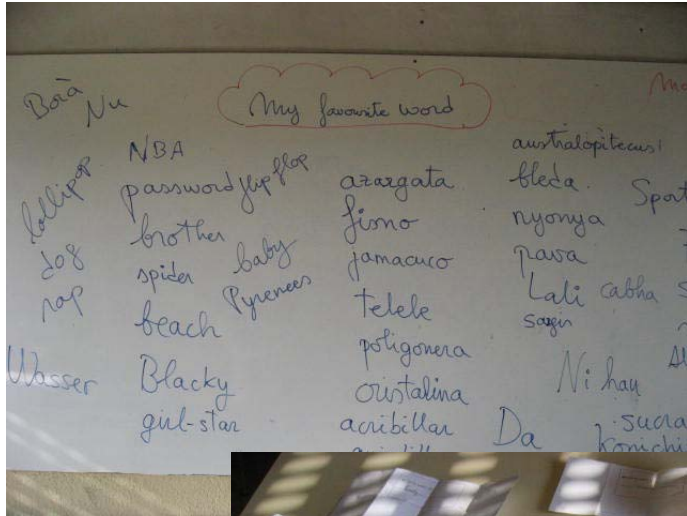 Borà
Nu
My favourite word
lollipop
dog
rap
Wasser
NBA
password
flip flop
brother
baby
spider
Pyrenees
beach
Blacky
girl-star
azargata
fismo
jamacuco
telele
poligonera
cristalina
acribillar
australopitecus!
bleda
nyonya
pava
Lali cabha
Ni hau
Da